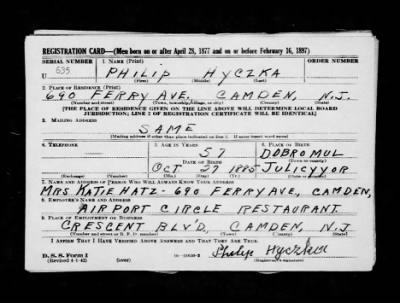 REGISTRATION CARD—(Men born on or after April 28, 1877 and on or before February 16, 1897)
SERIAL NUMBER 1. NAME (Print) ORDER NUMBER
U 635 PHILIP HYCZKA
(First) (Middle) (Last)
2. PLACE OF RESIDENCE (Print)
690 FERRY AVE, CAMDEN, N.J.
(Number and street) (Town, township, village, or city) (County) (State)
[THE PLACE OF RESIDENCE GIVEN ON THE LINE ABOVE WILL DETERMINE LOCAL BOARD
JURISDICTION; LINE 2 OF REGISTRATION CERTIFICATE WILL BE IDENTICAL]
3. MAILING ADDRESS
SAME
(Mailing address if other than place indicated on line 2. If same insert word same)
4. TELEPHONE 5. AGE IN YEARS 6. PLACE OF BIRTH
57 DOBROMUL
DATE OF BIRTH
OCT 27 1885 JULICYYOR
7. NAME AND ADDRESS OF PERSON WHO WILL ALWAYS KNOW YOUR ADDRESS
MRS KATIE HATZ- 690 FERRY AVE, CAMDEN,
8. EMPLOYER'S NAME AND ADDRESS
AIRPORT CIRCLE RESTAURANT.
9. PLACE OF EMPLOYMENT OR BUSINESS
CRESCENT BLV'D, CAMDEN, N.J
(Number and street or R. F. D. number) (Town) (County) (State)
I AFFIRM THAT I HAVE VERIFIED ABOVE ANSWERS AND THAT THEY ARE TRUE.
D. S. S. Form 1
(Revised 4-1-42) (over) Philip Hyczka
(Registrant's signature)